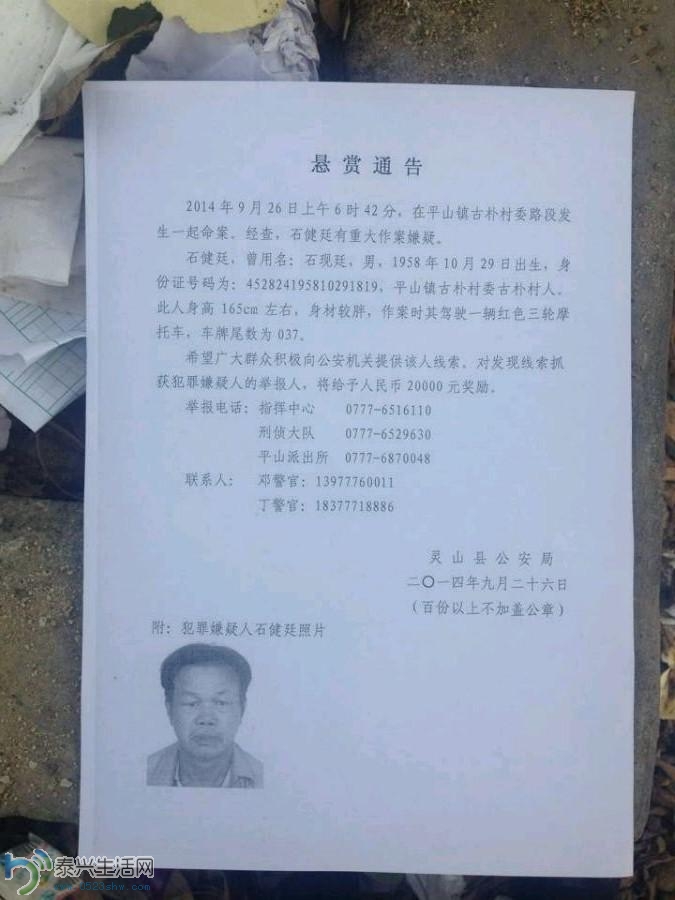 悬赏通告
2014年9月26日上午6时42分，在平山镇古朴村委路段发
生一起命案。经查，石健廷有重大作案嫌疑。
石健廷，曾用名：石现廷，男，1958年10月29日出生，身
份证号码为：452824195810291819，平山镇古朴村委古朴村人。
此人身高165cm左右，身材较胖，作案时其驾驶一辆红色三轮摩
托车，车牌尾数为037。
希望广大群众积极向公安机关提供该人线索。对发现线索抓
获犯罪嫌疑人的举报人，将给予人民币20000元奖励。
举报电话：指挥中心 0777-6516110
刑侦大队 0777-6529630
平山派出所 0777-6870048
联系人： 邓警官：13977760011
丁警官：18377718886
灵山县公安局
二〇一四年九月二十六日
（百份以上不加盖公章）
附：犯罪嫌疑人石健廷照片
泰兴生活网